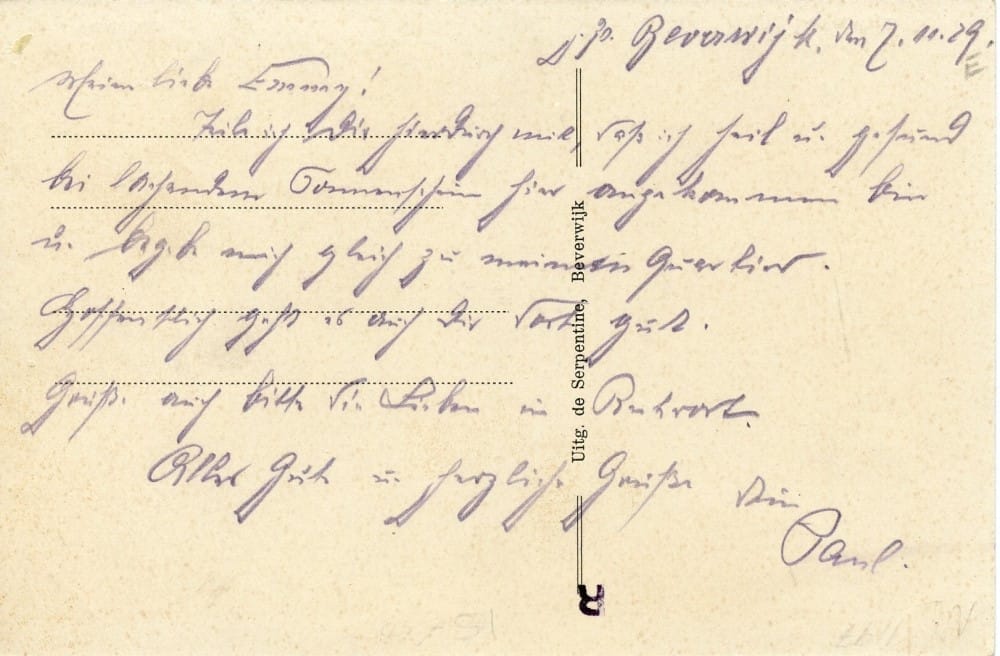 Beverwijk, den 7.10.29.
Meine liebe Emmy!
Teile ich Dir hierdurch mit, daß ich heil u. gesund
bei lachendem Sonnenschein hier angekommen bin
u. begebe mich gleich zu meinem Quartier.
Hoffentlich geht es auch Dir dort gut.
Grüße auch bitte die Lieben in Ruhrort.
Alles Gute u. herzliche Grüße Dein
Paul.
Uitg. de Serpentine, Beverwijk